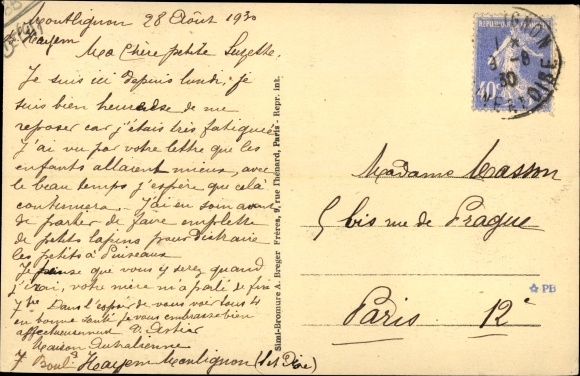 Montlignon 28 Août 1930
Hayem
Ma Chère petite Suzette.
Je suis ici depuis lundi, je
suis bien heureuse de me
reposer car j'étais très fatiguée
J'ai vu par votre lettre que les
enfants allaient mieux, avec
le beau temps j'espère que celà
continuera. J'ai eu soin avant
de partir de faire emplette
de petits lapins pour distraire
les petits à Puiseaux
Je pense que vous y serez quand
j'irai, votre mère m'a parlé de fin
7bre Dans l'espoir de vous voir tous 4
en bonne santé je vous embrasse bien
affectueusement D. Astier
Maison Australienne
7 Boul. Hayem Montlignon (Set Oise)
Simi-Bromure A. Breger Frères, 9, rue Thénard, Paris - Repr. int.
REPUBLIQUE
40c
30
OISE
Madame Masson
5 bis rue de Prague
Paris 12e
PB